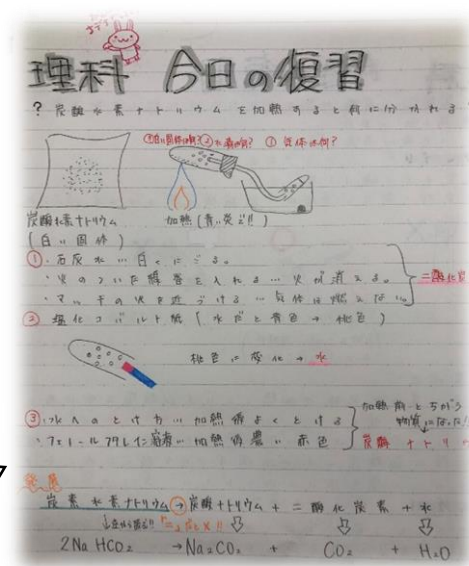 理科 今日の復習
? 炭酸水素ナトリウムを加熱すると何に分かれる
③白い固体は何? ②水滴は何? ① 気体は何?
炭酸水素ナトリウム
(白い固体)
加熱(青い炎で!!)
① ・石灰水…白くにごる。
・火のついた線香を入れる…火が消える。
・マッチの火を近づける…気体は燃えない。
二酸化炭
② 塩化コバルト紙(水だと青色→桃色)
桃色に変化→水
③ ・水へのとけ方…加熱後よくとける
・フェノールフタレイン溶液…加熱後濃い赤色
加熱前とちがう
物質になった!
炭酸ナトリ
発展
炭素水素ナトリウム→炭酸ナトリウム + 二酸化炭素 + 水
2NaHCO₂ →Na₂CO₂ + CO₂ + H₂O